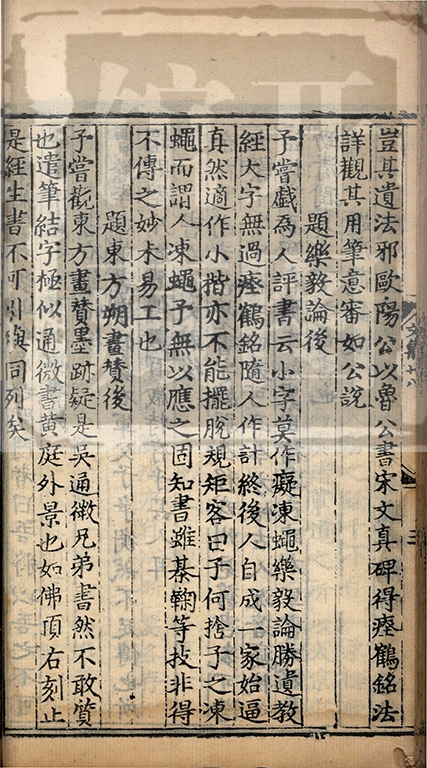 豈其遺法邪歐陽公以魯公書宋文真碑得瘞鶴銘法
詳觀其用筆意審如公說
題樂毅論後
予嘗戲為人評書云小字莫作癡凍蠅樂毅論勝遺教
經大字無過瘞鶴銘隨人作計終後人自成一家始逼
真然適作小楷亦不能擺脫規矩客曰子何捨子之凍
蠅而謂人凍蠅予無以應之固知書雖棊鞠等技非得
不傳之妙未易工也
題東方朔畫贊後
予嘗觀東方畫贊墨跡疑是吳通微兄弟書然不敢質
也遣筆結字極似通微書黃庭外景也如佛頂石刻止
是經生書不可引與同列矣
文集十八
三